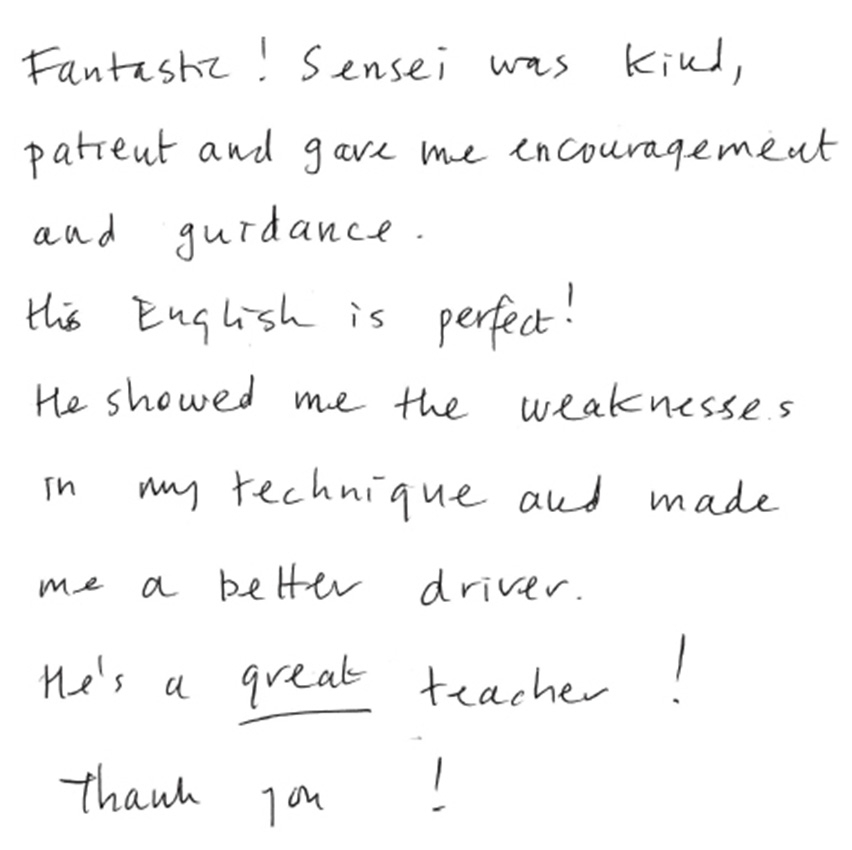 Fantastic! Sensei was kind,
patient and gave me encouragement
and guidance.
His English is perfect!
He showed me the weaknesses
in my technique and made
me a better driver.
He's a great teacher!
Thank you!